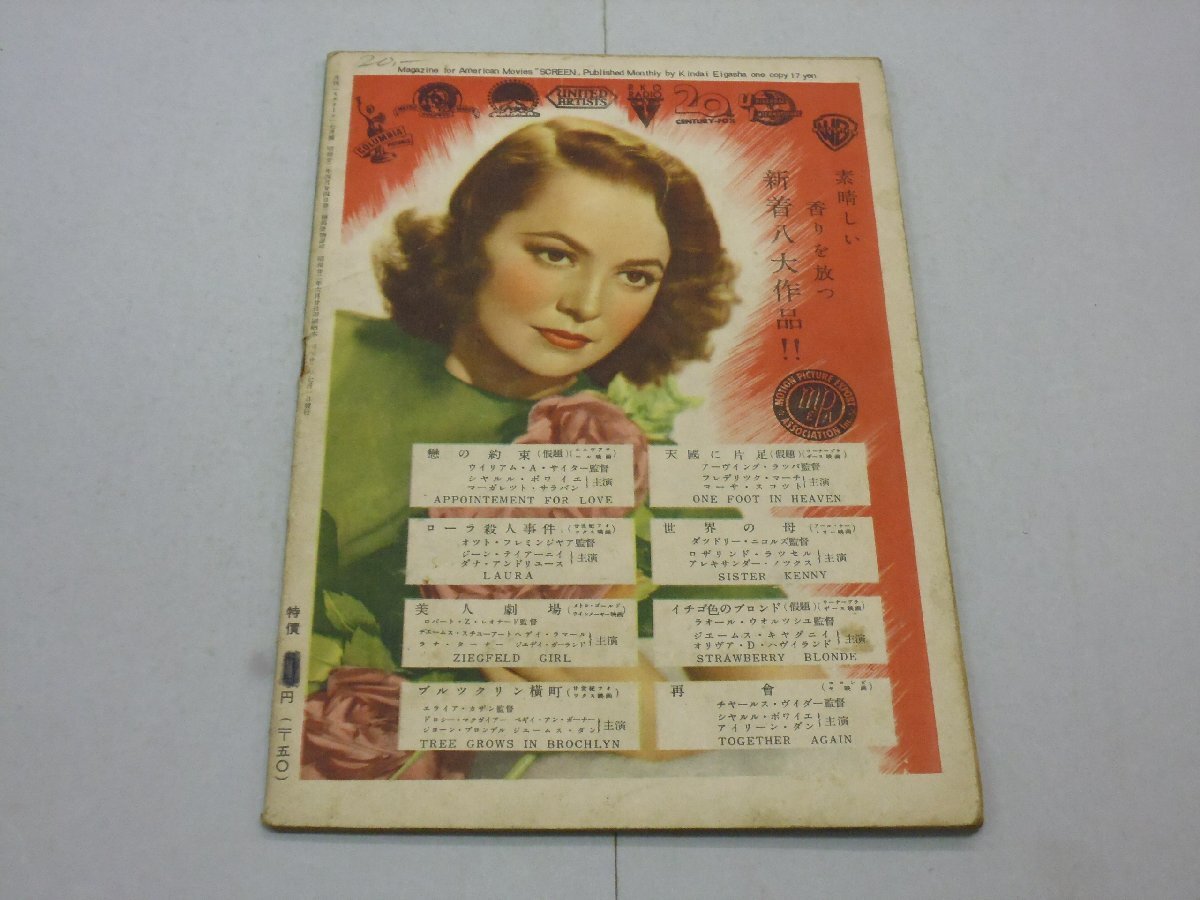 20,-
Magazine for American Movies "SCREEN„ Published Monthly by Kindai Eigasha one copy 17 yen
COLUMBIA
UNITED ARTISTS
RKO RADIO
20
CENTURY-FOX
WB
素晴しい
香りを放つ
新着八大作品!!
MOTION PICTURE EXPORT ASSOCIATION Inc.
戀の約束(假題)
ウイリアム・A・サイター監督
シヤルル・ボワイエ
マーガレツト・サラバン
主演
APPOINTEMENT FOR LOVE
天國に片足(假題)
アーヴイング・ラツパ監督
フレデリツク・マーチ
マーサ・スコツト
主演
ONE FOOT IN HEAVEN
ローラ殺人事件
オツト・フレミンジヤア監督
ジーン・テイアーニイ
ダナ・アンドリユース
主演
LAURA
世界の母
ダツドリー・ニコルズ監督
ロザリンド・ラツセル
アレキサンダー・ノツクス
主演
SISTER KENNY
美人劇場(メトロ・ゴールドウインメーヤー映画)
ロバート・Z・レオナード監督
ヂエームス・スチユーアート ヘデイ・ラマール
ラナ・ターナー ジユデイ・ガーランド
主演
ZIEGFELD GIRL
イチゴ色のブロンド(假題)(ワーナーブラザース映画)
ラオール・ウオルツシユ監督
ジエームス・キヤグニイ
オリヴア・D・ハヴイランド
主演
STRAWBERRY BLONDE
ブルツクリン横町(廿世紀フオツクス映画)
エライア・カザン監督
ドロシー・マクガイアー ペギイ・アン・ガーナー
ジヨーン・ブロンデル ジエームス・ダン
主演
TREE GROWS IN BROCHLYN
再會(コロンビヤ映画)
チヤールス・ヴイダー監督
シヤルル・ボワイエ
アイリーン・ダン
主演
TOGETHER AGAIN
特價
円(〒五〇)